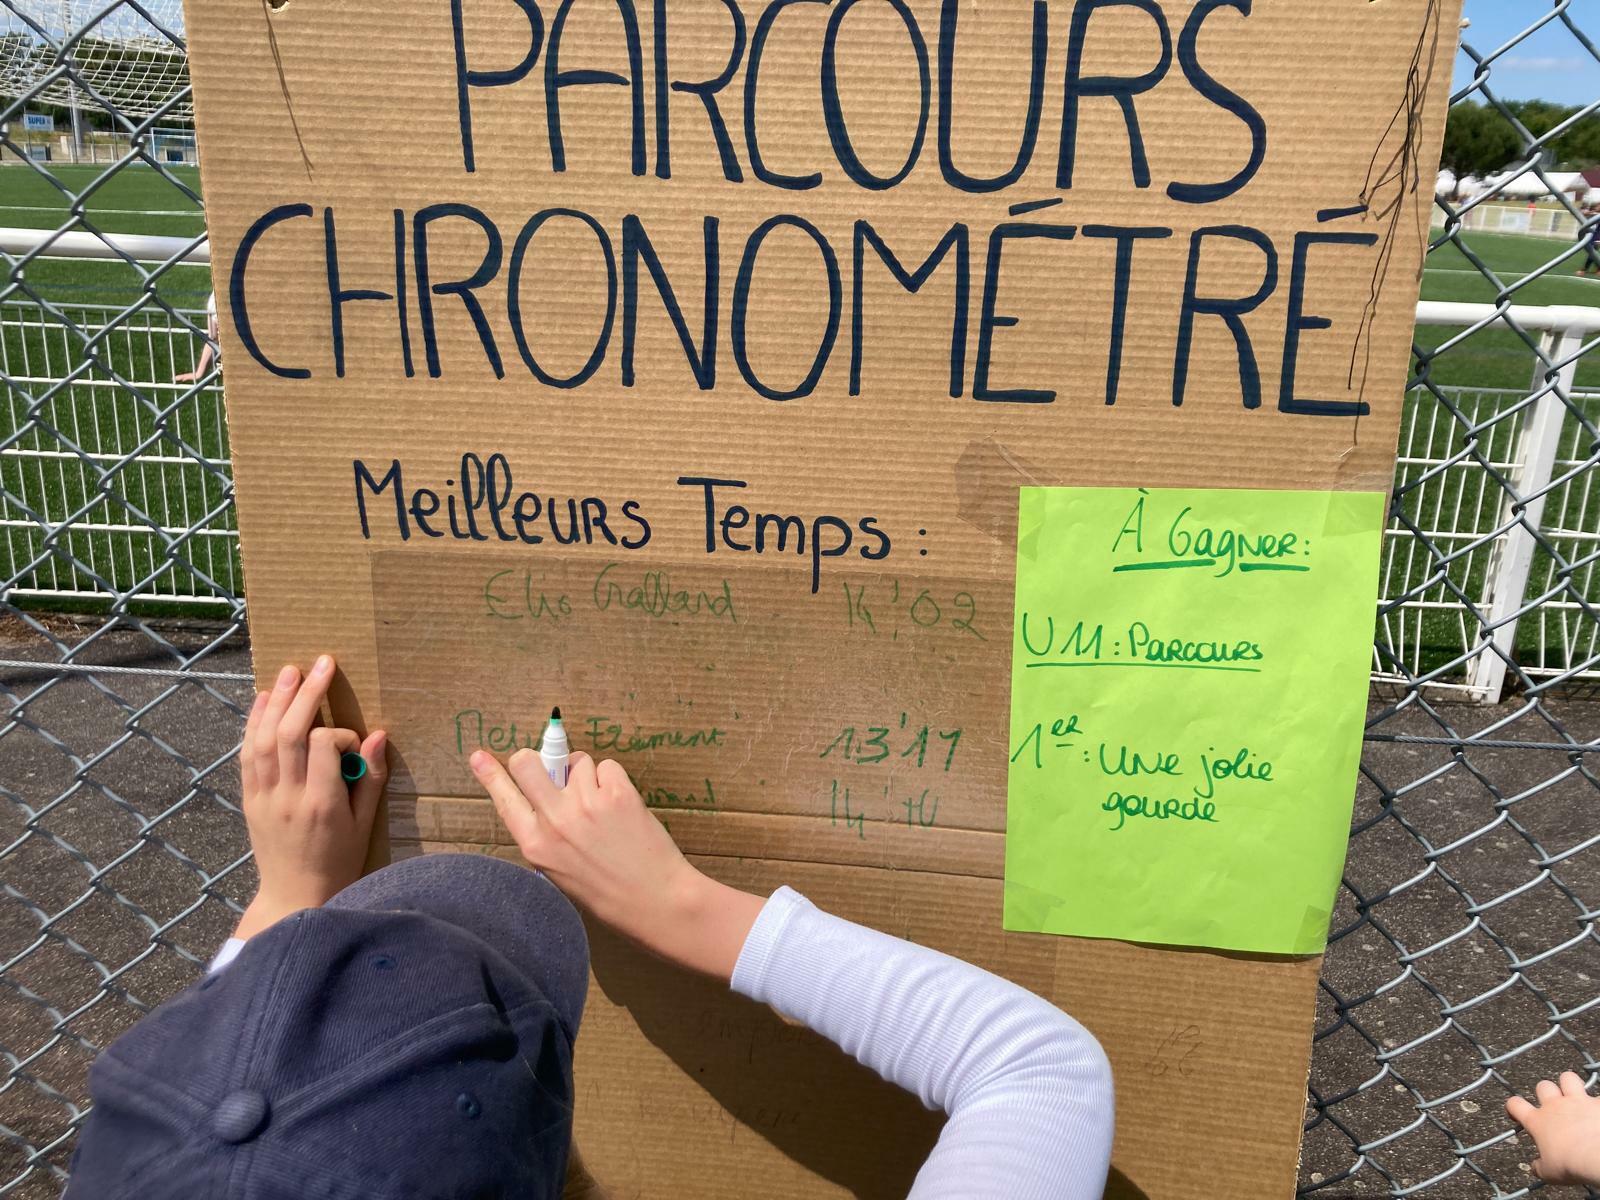 PARCOURS
CHRONOMÉTRÉ
Meilleurs Temps :
Elio Galland 14'02
13'17
14'10
À Gagner:
U11: Parcours
1er: Une jolie
gourde
SUPER U